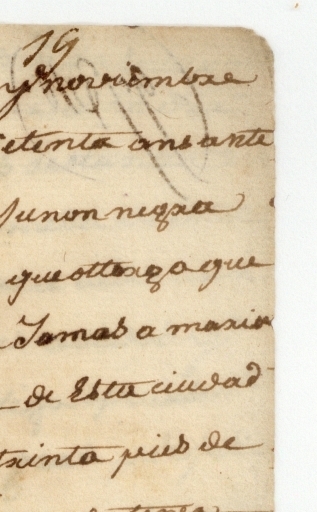 19
y noviembre
etenta ans ante
Junon negra
que ottorga que
Tomas a maria
de Esta ciudad
trinta pies de